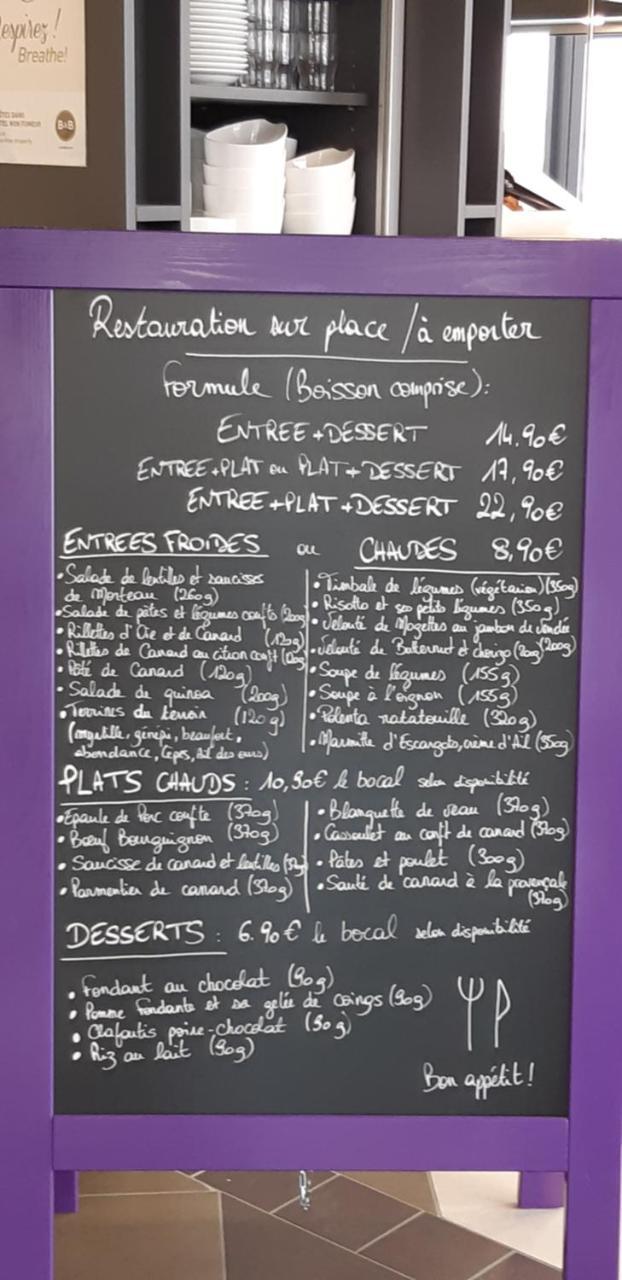 espirez!
Breathe!
B&B
Restauration sur place / à emporter
Formule (Boisson comprise):
ENTREE + DESSERT 14,90€
ENTREE + PLAT ou PLAT + DESSERT 17,90€
ENTREE + PLAT + DESSERT 22,90€
ENTREES FROIDES ou CHAUDES 8,90€
• Salade de lentilles et saucisses
de Morteau (260g)
• Salade de pâtes et légumes confits (200g)
• Rillettes d'Oie et de Canard (120g)
• Rillettes de Canard au citron confit (120g)
• Pâté de Canard (120g)
• Salade de quinoa (200g)
• Terrines du terroir (120g)
(myrtille, génépi, beaufort,
abondance, Cèpes, Ail des ours)
• Timbale de légumes (végétarien) (350g)
• Risotto et ses petits légumes (350g)
• Velouté de Mogettes au jambon de vendée
(200g)
• Velouté de Butternut et chorizo
• Soupe de légumes (155g)
• Soupe à l'oignon (155g)
• Polenta ratatouille (320g)
• Marmite d'Escargots, crème d'Ail (350g)
PLATS CHAUDS : 10,90€ le bocal selon disponibilité
• Epaule de Porc confite (370g)
• Bœuf Bourguignon (370g)
• Saucisse de canard et lentilles
• Parmentier de canard (320g)
• Blanquette de veau (370g)
• Cassoulet au confit de canard (370g)
• Pâtes et poulet (300g)
• Sauté de canard à la provençale
(370g)
DESSERTS : 6.90€ le bocal selon disponibilité
• Fondant au chocolat (90g)
• Pomme fondante et sa gelée de coings (90g)
• Clafoutis poire-chocolat (90g)
• Riz au lait (90g)
Bon appétit!